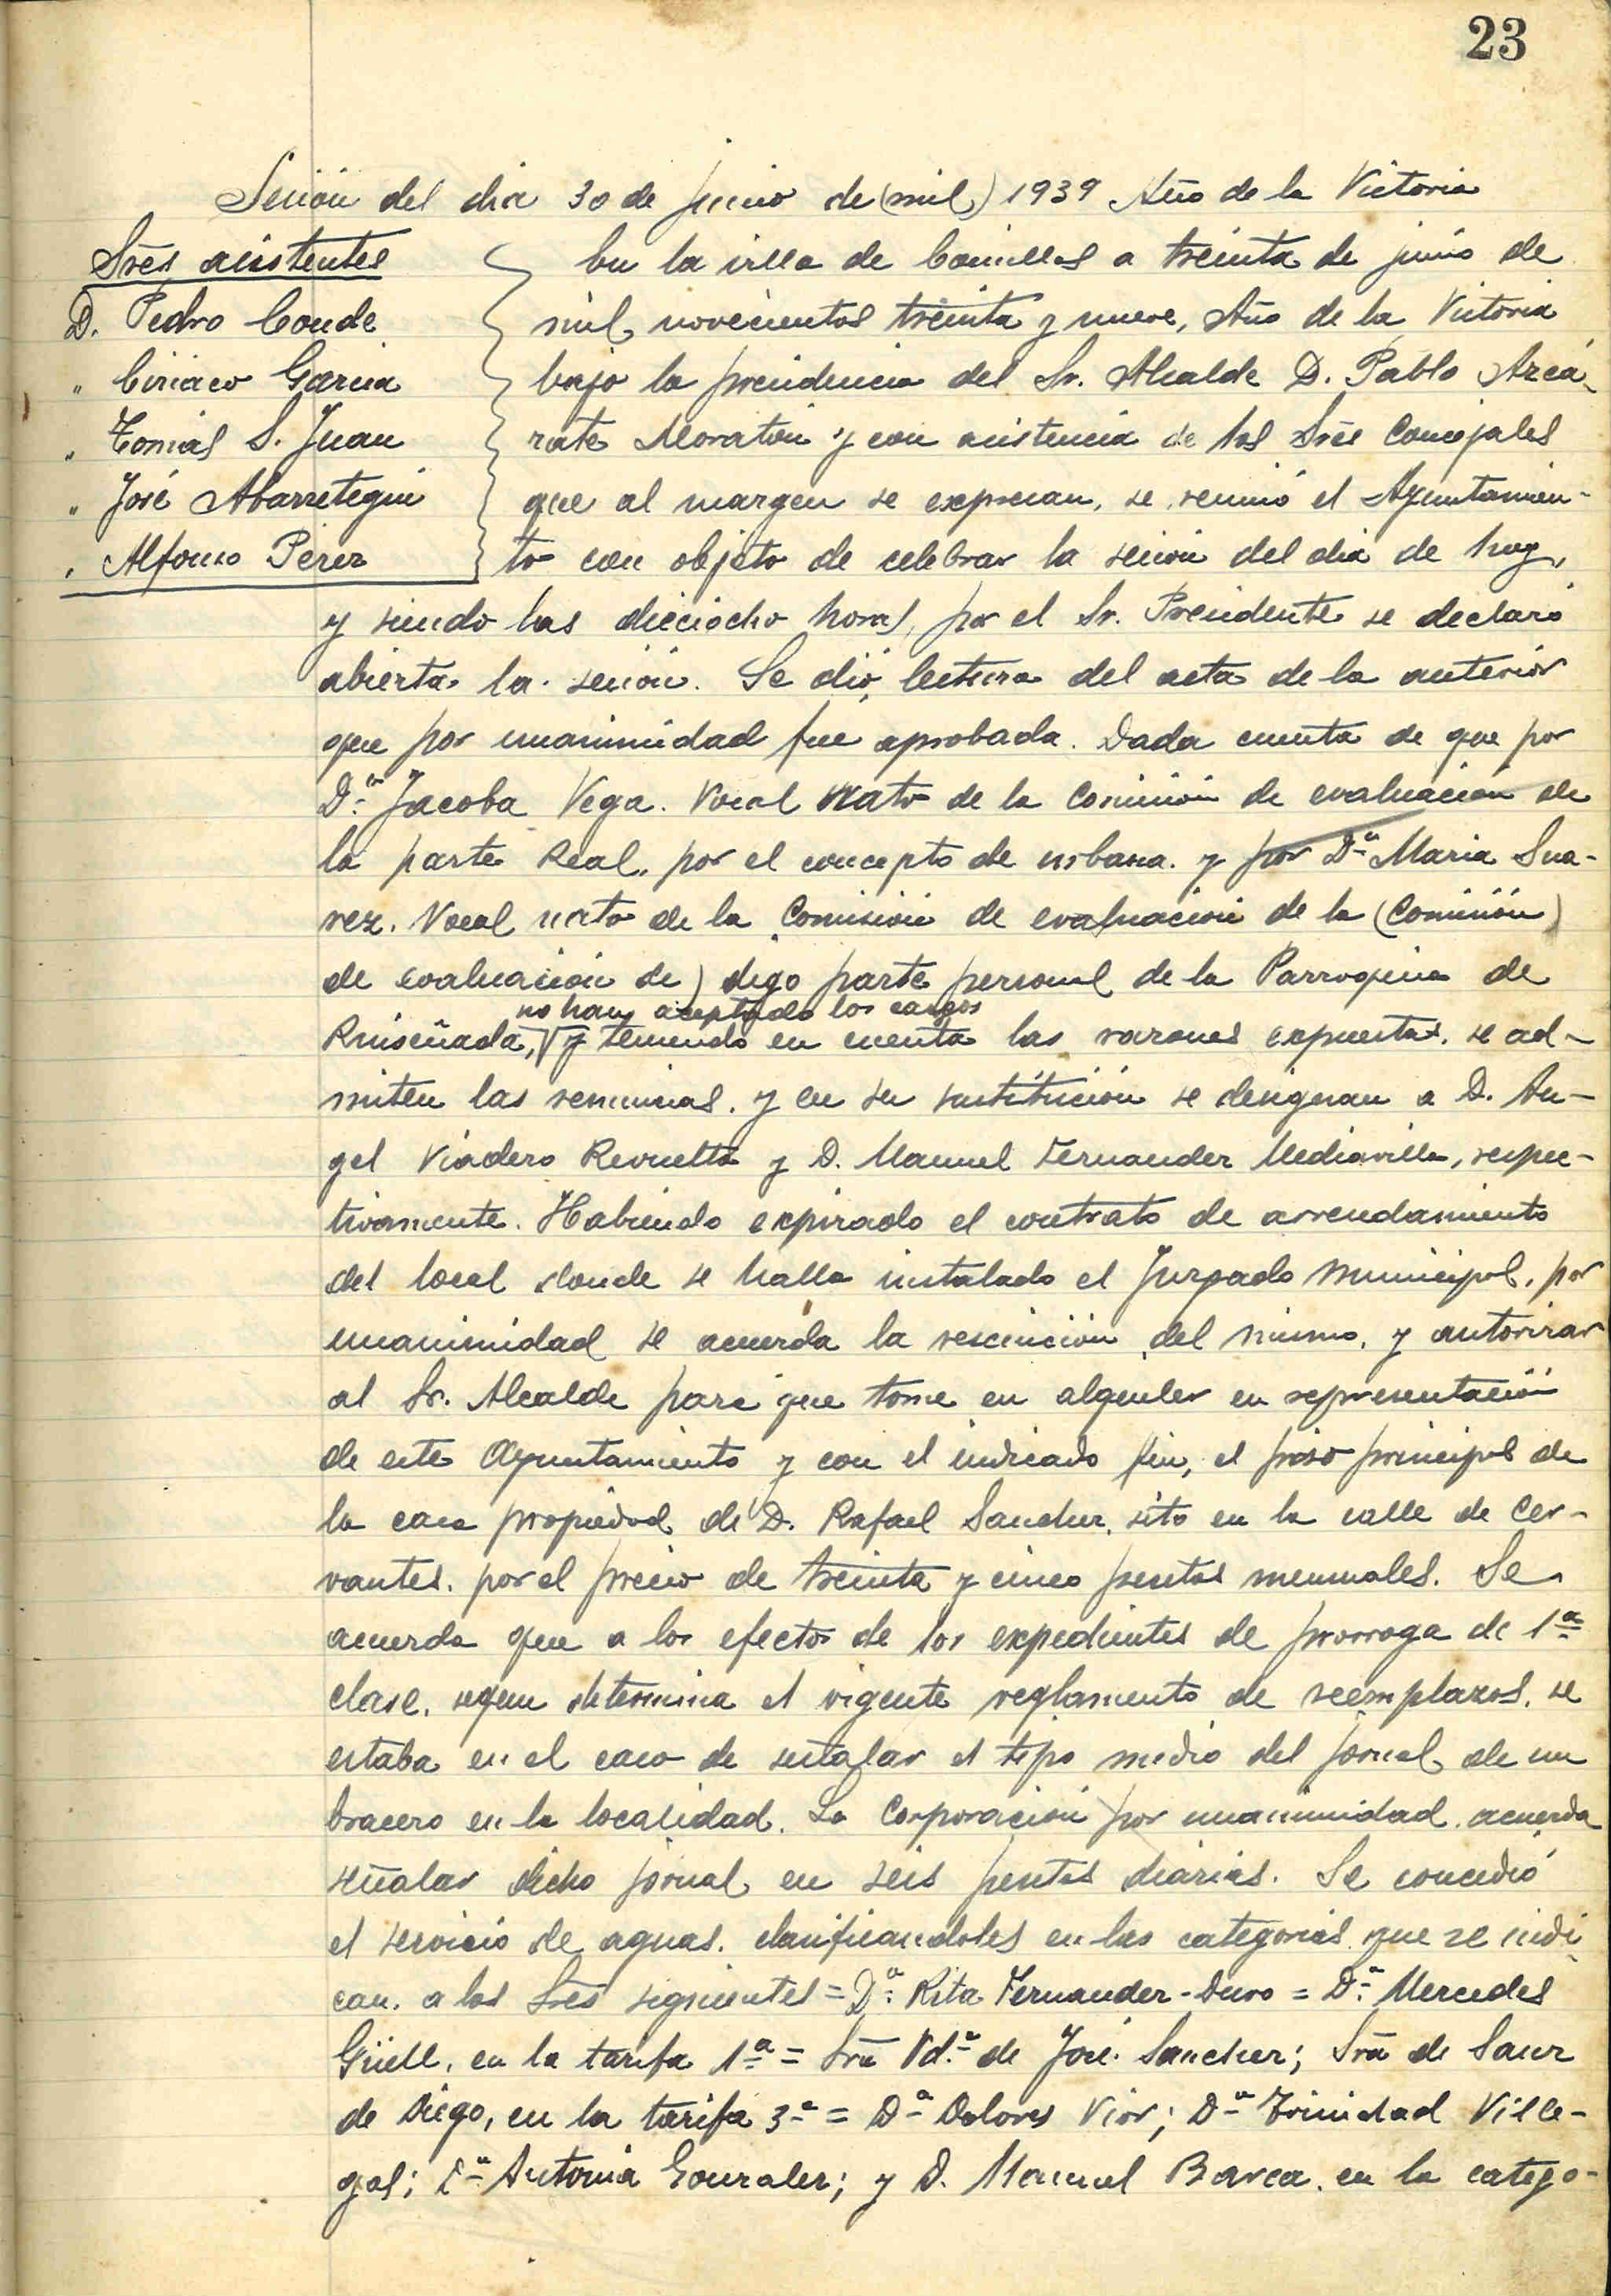 23
Sesión del dia 30 de junio de (mil) 1939 Año de la Victoria
Sres asistentes
D. Pedro Conde
" Ciriaco Garcia
" Tomás S. Juan
" José Abarretegui
" Alfonso Pérez
En la villa de Comillas a treinta de junio de
mil novecientos treinta y nueve, Año de la Victoria
bajo la presidencia del Sr. Alcalde D. Pablo Azcá-
rate Moratón y con asistencia de los Sres Concejales
que al margen se expresan, se reunió el Ayuntamien-
to con objeto de celebrar la sesión del dia de hoy,
y siendo las dieciocho horas, por el Sr. Presidente se declaró
abierta la sesión. Se dió lectura del acta de la anterior
que por unanimidad fue aprobada. Dada cuenta de que por
D.ª Jacoba Vega. Vocal nato de la Comisión de evaluación de
la parte Real, por el concepto de urbana. y por D.ª Maria Sua-
rez. Vocal nato de la Comisión de evaluación de la (Comisión)
de evaluación de) digo parte personal de la Parroquia de
no han aceptado los cargos
Ruiseñada, y teniendo en cuenta las razones expuestas. se ad-
miten las renuncias. y en su sustitución se designan a D. An-
gel Viadero Revuelta y D. Manuel Fernandez Mediavilla, respec-
tivamente. Habiendo expirado el contrato de arrendamiento
del local donde se halla instalado el Juzgado Municipal, por
unanimidad se acuerda la rescinción del mismo, y autorizar
al Sr. Alcalde para que tome en alquiler en representación
de este Ayuntamiento y con el indicado fin, el piso principal de
la casa propiedad de D. Rafael Sanchez, sito en la calle de Cer-
vantes. por el precio de treinta y cinco pesetas mensuales. Se
acuerda que a los efectos de los expedientes de prorroga de 1ª
clase, segun determina el vigente reglamento de reemplazos. se
estaba en el caso de señalar el tipo medio del jornal de un
bracero en la localidad. La Corporación por unanimidad acuerda
señalar dicho jornal en seis pesetas diarias. Se concedió
el servicio de aguas. clasificandoles en las categorias que se indi-
can. a los Sres siguientes = D.ª Rita Fernandez-Duro = D.ª Mercedes
Güell, en la tarifa 1ª = Sra Vd.ª de José Sanchez; Sra de Sanz
de Diego, en la tarifa 3ª = D.ª Dolores Vior; D.ª Trinidad Ville-
gas; D.ª Antonia Gonzalez; y D. Manuel Barca. en la catego-